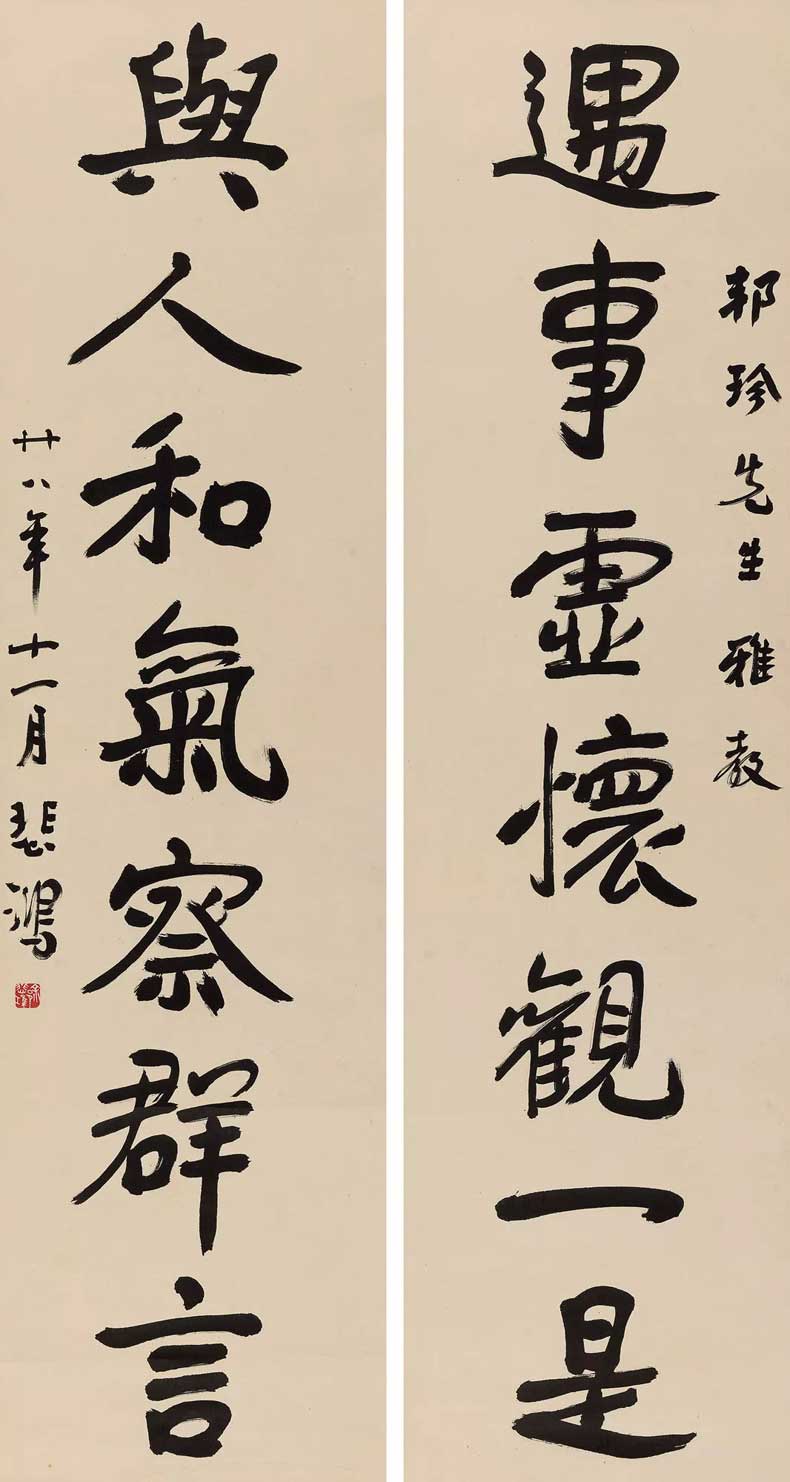 邦珍先生雅教
遇事虛懷觀一是
與人和氣察群言
廿八年十一月悲鴻